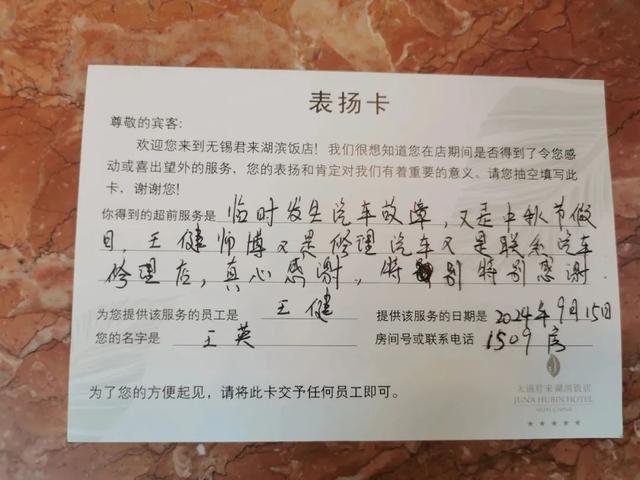 表扬卡
尊敬的宾客：
欢迎您来到无锡君来湖滨饭店！我们很想知道您在店期间是否得到了令您感
动或喜出望外的服务，您的表扬和肯定对我们有着重要的意义。请您抽空填写此
卡，谢谢您！
你得到的超前服务是 临时发生汽车故障，又是中秋节假
日，王健师傅又是修理汽车又是联系汽车
修理店，真心感谢，特别特别感谢.
为您提供该服务的员工是 王健 提供该服务的日期是 2024年9月15日
您的名字是 王英 房间号或联系电话 1509房
为了您的方便起见，请将此卡交予任何员工即可。
无锡君来湖滨饭店
JUNA HUBIN HOTEL
WUXI CHINA